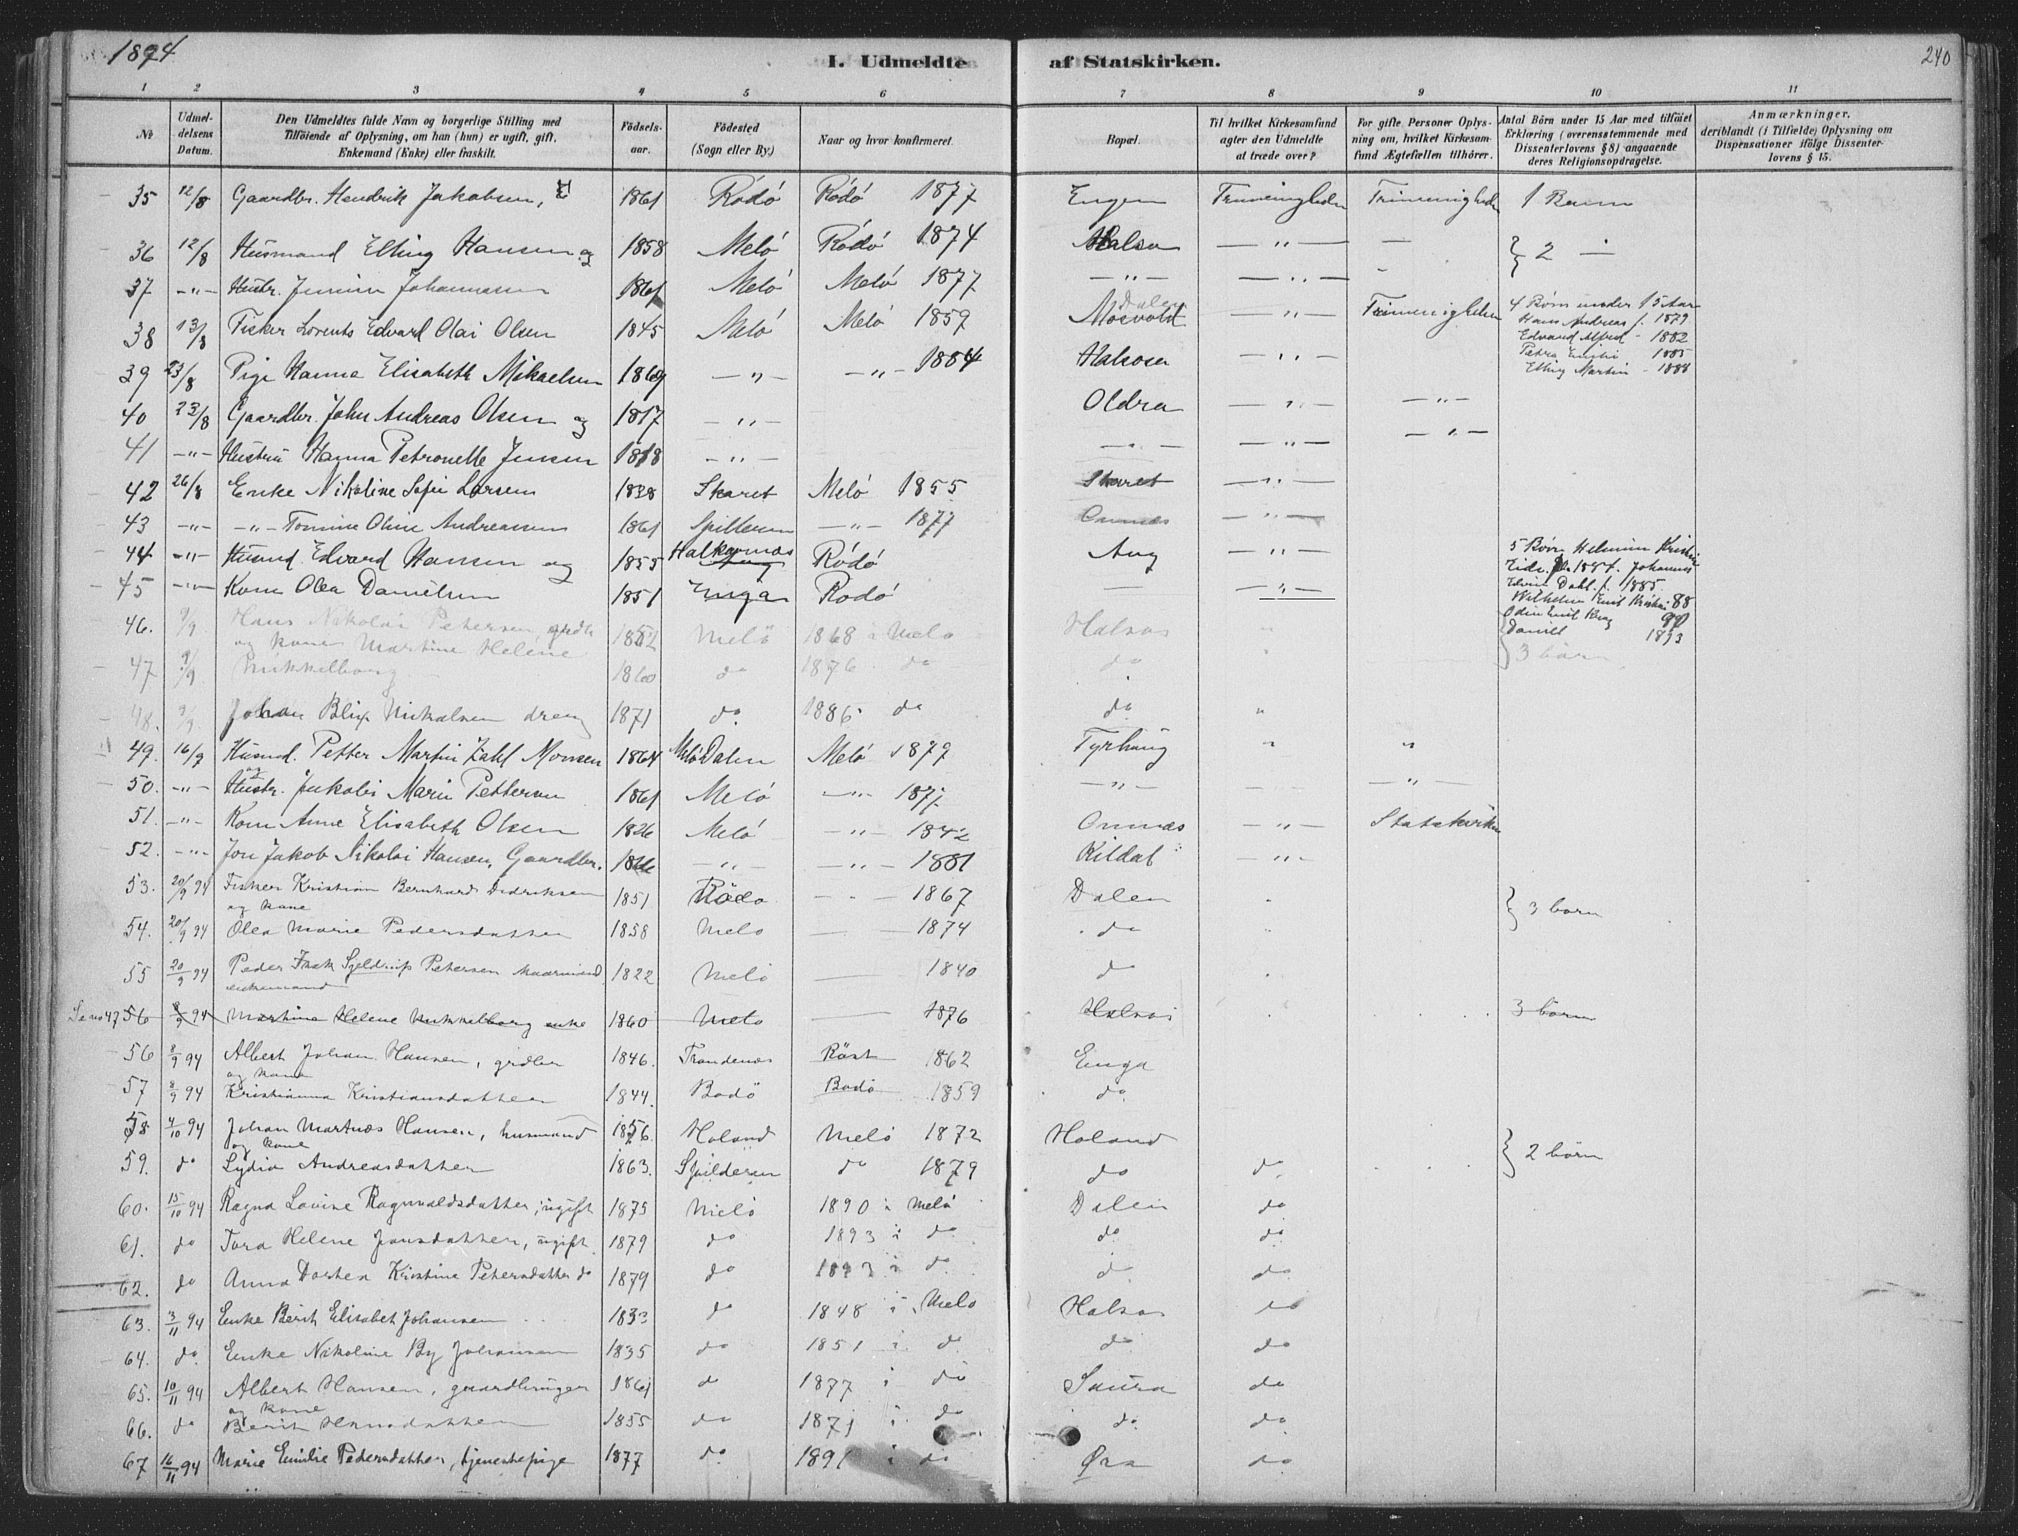 1894
I. Udmeldte af Statskirken.
240
1 2 3 4 5 6 7 8 9 10 11
No
Udmeldelsens Datum.
Den Udmeldtes fulde Navn og borgerlige Stilling med Tilföiende af Oplysning, om han (hun) er ugift, gift, Enkemand (Enke) eller fraskilt.
Födselsaar.
Födested (Sogn eller By.)
Naar og hvor konfirmeret.
Bopæl.
Til hvilket Kirkesamfund agter den Udmeldte at træde over?
For gifte Personer Oplysning om, hvilket Kirkesamfund Ægtefællen tilhörer.
Antal Börn under 15 Aar med tilföiet Erklæring (overensstemmende med Dissenterlovens § 8) angaaende deres Religionsopdragelse.
Anmærkninger, deriblandt (i Tilfælde) Oplysning om Dispensationer ifölge Dissenterlovens § 15.
35 12/8 Gaardbr. Hendrik Jakobsen, 1861 Rödö Rödö 1877 Engen 1 Barn
36 12/8 Husmand Elling Hansen og 1858 Melö Rödö 1874 Halsa — " — — } 2 —
37 — " — Hustr. Johannessen 1861 Melö Melö 1877 — " — — " —
38 13/8 Fisker Lorents Edvard Olai Olsen 1845 Melö Melö 1859 Dalen Mosvold — " — 4 Börn under 15 Aar
Hans Andreas f. 1879
Edvard Alfred - 1882
Petra - 1885
Elling Martin - 1888
39 23/8 Pige Hanna Elisabeth Mikaelsen 1869 — " — — " — 1884 Halsosen — " —
40 23/8 Gaardbr. John Andreas Olsen og 1817 — " — Oldra — " — — " —
41 — " — Hustru Hanna Petronelle Jensen 1818 — " — — " — — " — — " —
42 26/8 Enke Nikoline Sofie Larsen 1838 Skaret Melö 1855 Skaret — " —
43 — " — — " — Tomine Oline Andreassen 1861 Spilderen — " — 1877 Onnæs — " —
44 — " — Husmd. Edvard Hansen og 1855 Rödö Aug — " — 5 Börn
45 — " — Kone Olea Danielsen 1851 Enga Rödö — — " —
Johannes
Edvin Dahl f. 1885
Wilhelm Emil 88
Odin Emil
Daniel 1893
46. 9/9 Hans Nikolai Petersen, 1852 Melö 1868 i Melö Halsos "
og kone Martine Helene
47 9/9 Mikkelborg 1860 do 1876 do do } 3 börn
48. 9/9 Johan Blix Mikalsen dreng 1871 do. 1886 do do. "
49. 16/9 Husmd. Petter Martin Zahl Monsen 1864 Melö Dalen Melö 1879 Tyrhaug " "
og
50. — " — Hustr. Jakobi Marie Pettersen 1861 Melö — " — 1877 — " — — " —
51. — " — Kone Anne Elisabeth Olsen 1826 Melö — " — 1842 Onnæs — " — Statskirken
52. — " — Jon Jakob Nikolai Hansen, Gaardbr. — " — — " — 1881 Kildal — " —
53. 20/9 94 Fisker Kristian Bernhard Didriksen 1851 Rödö 1867 Dalen
og kone
54. 20/9 94 Olea Marie Pedersdatter 1858 Melö 1874 do } 3 börn
55 20/9 94 Peder Falk Sjeldrup Petersen 1822 Melö — 1840 do
enkemand
Se no 47 56 8/9 94 Martine Helene Mikkelborg enke 1860 Melö — 1876 Halsos 3 börn
56 8/9 94 Albert Johan Hansen, grdbr 1846. Trondenæs Röst 1862 Enga
og kone
57 8/9 94 Kristianna Kristiansdatter 1844. Bodö Bodö 1859 do.
58 4/10 94 Johan Martnæs Hansen, husmand 1856. Holand Melö 1872 Holand
og kone
59. do Lydia Andreasdatter 1863. Spilderen do 1879 do do } 2 börn
60. 15/10 94 Ragna Lovise Ragnvaldsdatter, ugift 1875 Melö 1890 i Melö Dalen do
61. do Tora Helene Jonsdatter, ugift 1879 do 1893 i do do do
62. do Anna Dortea Kristine Petersdatter do 1879 do 1893 i do. do do
63. 3/11 94 Enke Berit Elisabet Johansen 1833 do 1848 i Melö Halsos do
64. do. Enke Nikoline By Johansen 1835 do 1851 i do. do do
65. 10/11 94 Albert Hansen, gaardbruger 1861 do 1877 i do Saura do
og kone
66. do Berit Hansdatter 1855 do 1871 i do do. do
67 16/11 94 Marie Emilie Pedersdatter, tjenestepige 1877 do 1891 i do Øra do.